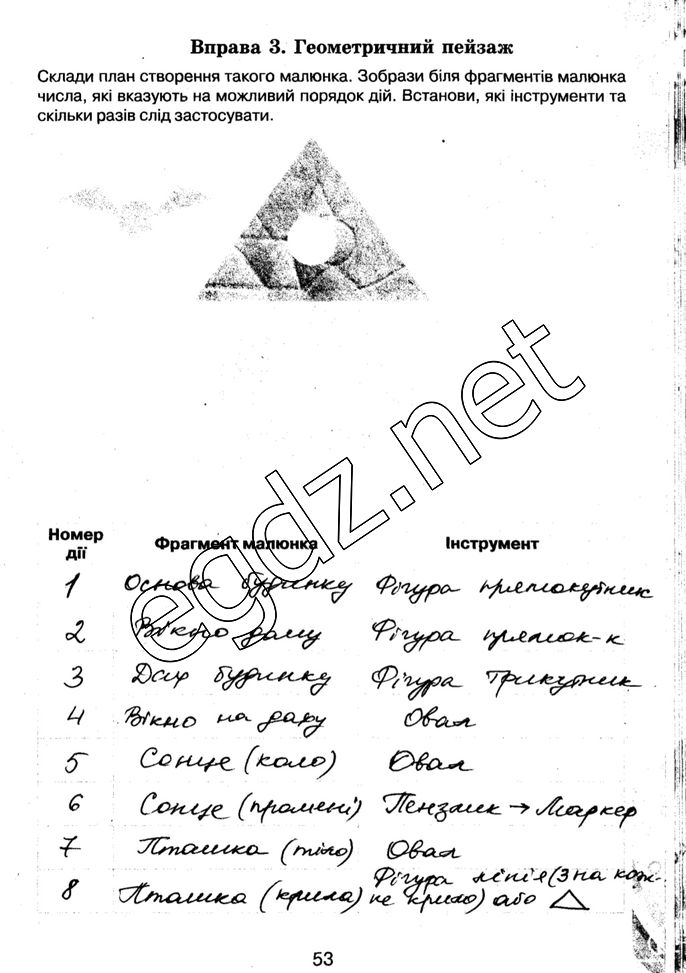 Вправа 3. Геометричний пейзаж
Склади план створення такого малюнка. Зобрази біля фрагментів малюнка
числа, які вказують на можливий порядок дій. Встанови, які інструменти та
скільки разів слід застосувати.
egdz.net
Номер дії Фрагмент малюнка Інструмент
1 Основа будинку Фігура прямокутник
2 Вікно дому Фігура прямок-к
3 Дах будинку Фігура трикутник
4 Вікно на даху Овал
5 Сонце (коло) Овал
6 Сонце (промені) Пензлик → Маркер
7 Пташка (тіло) Овал
8 Пташка (крила) Фігура лінія (3 на кож-
не крило) або
53